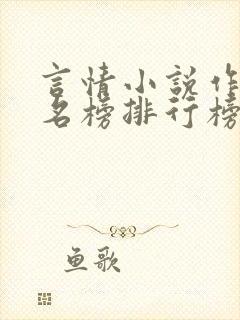 言情小说作
名榜排行榜
鱼歌